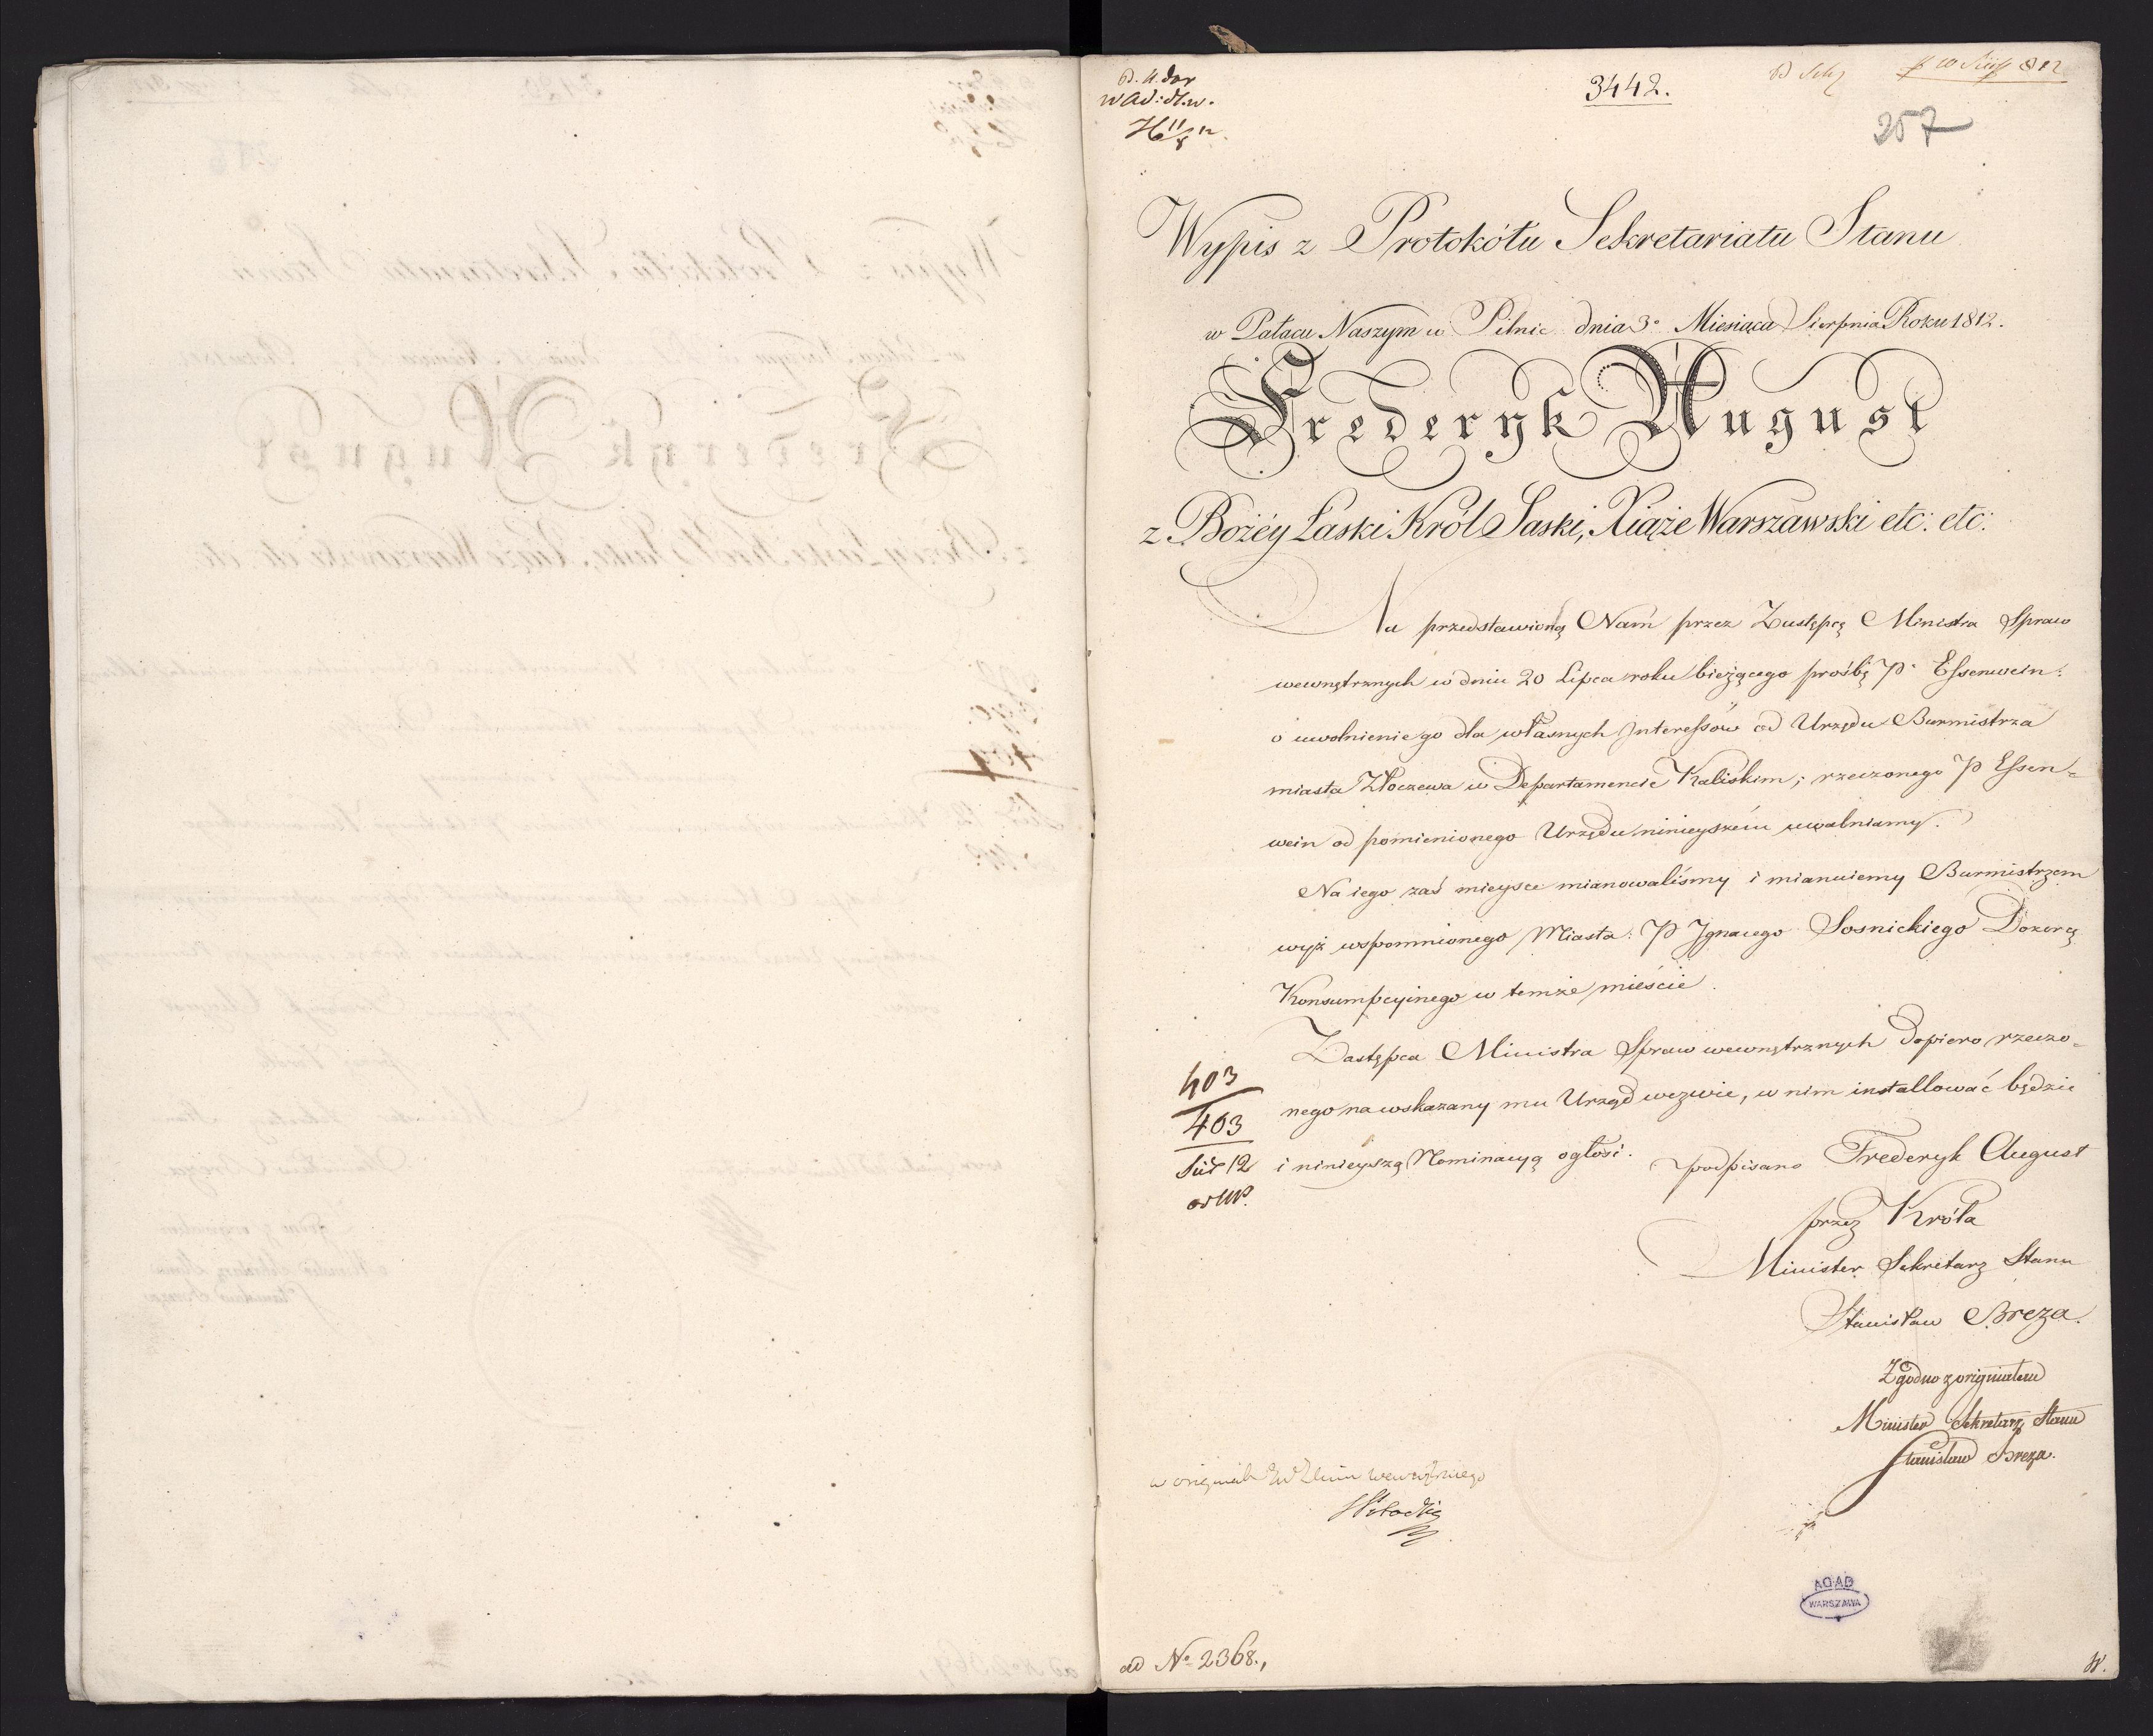 3442.
257
Wypis z Protokółu Sekretariatu Stanu
w Pałacu Naszym w Pilnic dnia 3º Miesiąca Sierpnia Roku 1812.
Frederyk August
z Bożéy Łaski Król Saski, Xiąże Warszawski etc: etc:
Na przedstawioną Nam przez Zastępcę Ministra Spraw
wewnętrznych w dniu 20 Lipca roku bieżącego prośbę P. Essenwein:
o uwolnienie go dla własnych Interessów od Urzędu Burmistrza
miasta Złoczewa w Departamencie Kaliskim; rzeczonego P Essen=
wein od pomienionego Urzędu ninieyszém uwalniamy.
Na iego zaś mieysce mianowaliśmy i mianuiemy Burmistrzem
wyż wspomnionego Miasta: P Ignacego Sosnickiego Dozorcę
Konsumpcyinego w temże mieście.
Zastępca Ministra Spraw wewnętrznych dopiero rzeczo=
nego na wskazany mu Urząd wezwie, w nim installować będzie
i ninieyszą Nominacyą ogłosi.
403
403
12
podpisano Frederyk August
przez Króla
Minister Sekretarz Stanu
Stanisław Breza.
Zgodno z originałem
Minister Sekretarz Stanu
Stanisław Breza.
AGAD
WARSZAWA
ad Nº 2368.,